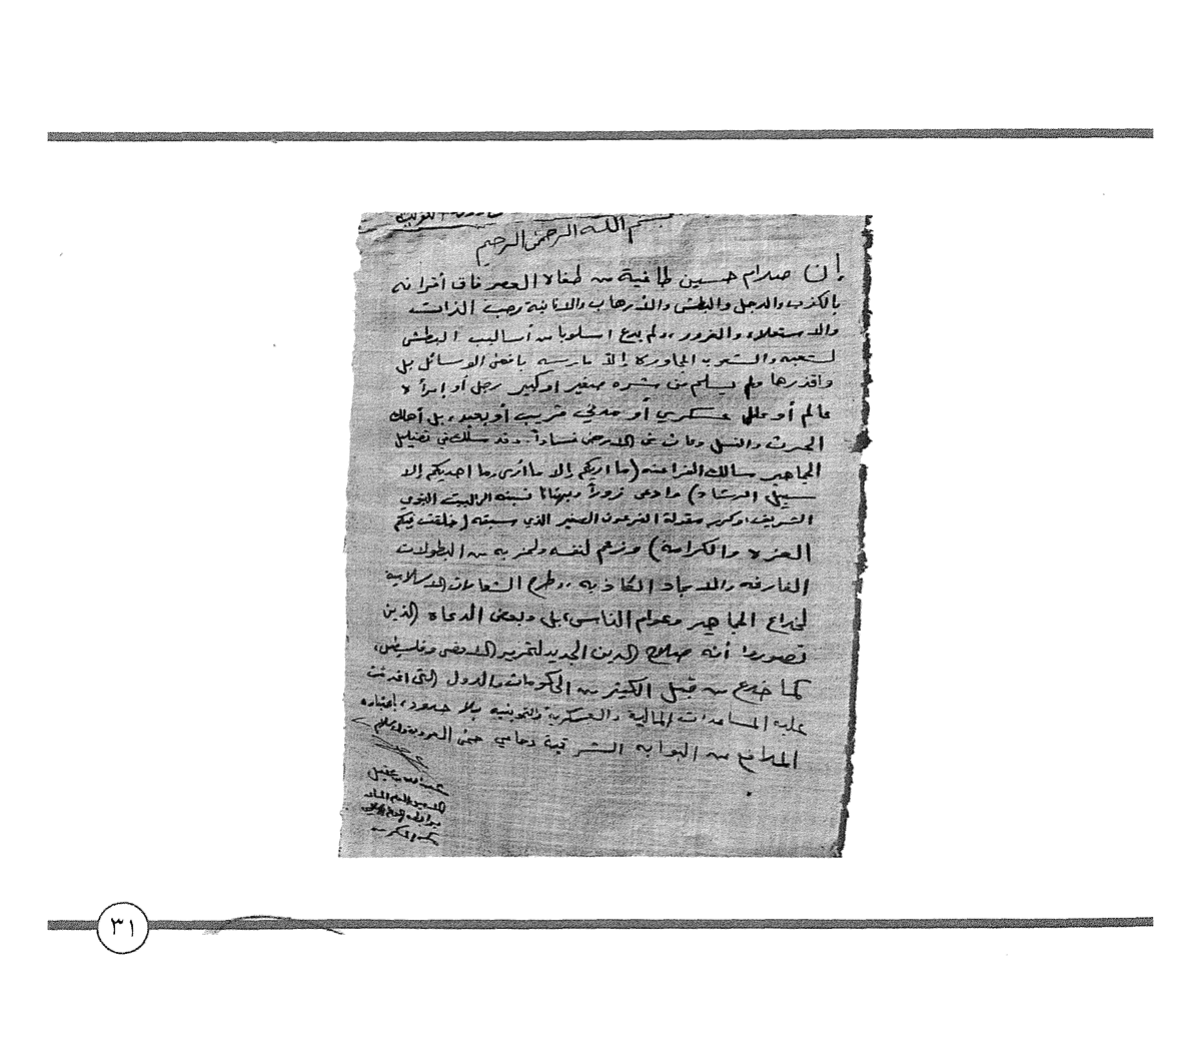 بسم الله الرحمن الرحيم
إن صدام حسين طاغية من طغاة العصر فاق أقرانه
بالكذب والدجل والبطش والأرهاب والانانية وحب الذات
والاستعلاء والغرور، ولم يدع اسلوبا من أساليب البطش
لشعبه والشعوب المجاورة إلا مارسه بافضى الوسائل بل
واقذرها ولم يسلم من شره صغير او كبير رجل أو إمرأة
عالم أو عسكري أو مدني قريب أو بعيد، بل أهلك
الحرث والنسل وعاث في الارض فساداً وقد سلك في تضليل
الجماهير مسالك الفراعنة (ما اريكم إلا ما أرى وما اهديكم إلا
سبيل الرشاد) وادعى زوراً وبهتانا نسبه الى البيت النبوي
الشريف، وكرر مقولة الفرعون الصغير الذي سبقه (خلقت فيكم
العزة والكرامة) وزعم لنفسه ولحزبه من البطولات
الفارغه والامجاد الكاذبه .. وطرح الشعارات الاسلامية
لخداع الجماهير وعوام الناس، بل وبعض الدعاة الذين
تصوروا أنه صلاح الدين الجديد لتحرير الاقصى وفلسطين،
كما خدع من قبل الكثير من الحكومات والدول التي اغدقت
عليه المساعدات المالية والعسكرية والتموينيه بلا حدود، باعتباره
المدافع عن البوابه الشرقية وحامي حمى العروبة والاسلام
عبدالله بن عقيل
٣١